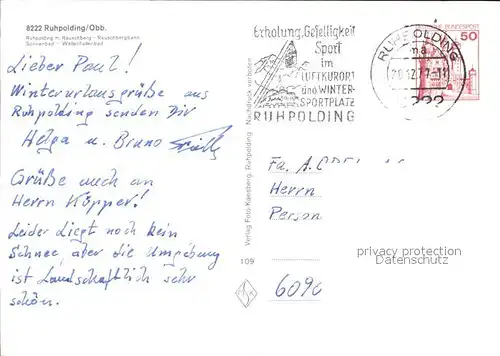 8222 Ruhpolding/Obb.
Ruhpolding m. Rauschberg - Rauschbergbahn
Sonnenbad - Wellenhallenbad
Lieber Paul!
Winterurlausgrüße aus
Ruhpolding senden Dir
Helga u. Bruno
Grüße auch an
Herrn Köpper!
Leider liegt noch kein
Schnee, aber die Umgebung
ist Landschaftlich sehr
schön.
Verlag Foto Kaensberg, Ruhpolding
Nachdruck verboten
109
Erholung, Geselligkeit
Sport
im
LUFTKURORT
und WINTER-
SPORTPLATZ
RUHPOLDING
RUHPOLDING
20.12.77-11
8222
DEUTSCHE BUNDESPOST
50
Fa. A.
Herrn
Person
privacy protection
Datenschutz
6090